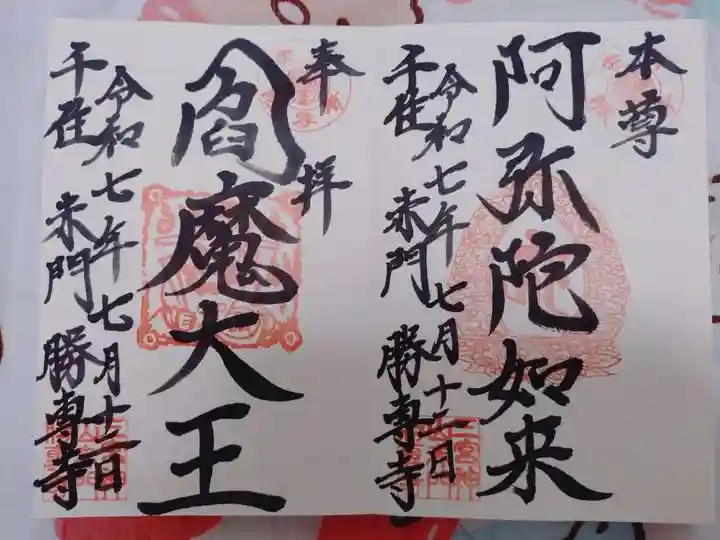 本尊
阿弥陀如来
令和七年七月十二日
千住 赤門 勝専寺
奉拝
閻魔大王
令和七年七月十二日
千住 赤門 勝専寺